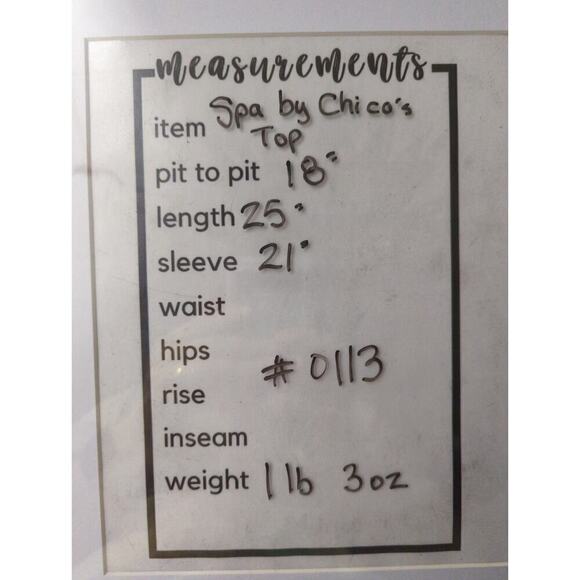 measurements
item Spa by Chico's
Top
pit to pit 18"
length 25"
sleeve 21"
waist
hips
# 0113
rise
inseam
weight 1 lb 3oz